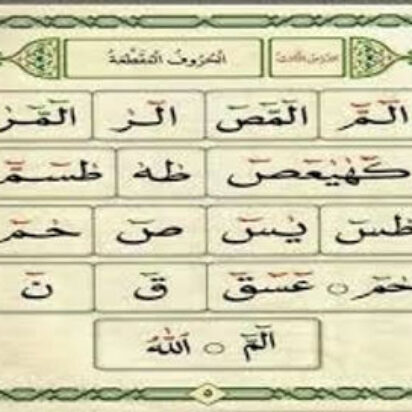 الحُرُوفُ المُقَطَّعَةُ
الٓمّٓ الٓمّٓصٓ الٓرٰ الٓمّٓرٰ
كٓهٰيٰعٓصٓ طٰهٰ طٰسٓمّٓ
طٰسٓ يٰسٓ صٓ حٰمٓ
حٰمٓ ۝ عٓسٓقٓ قٓ نٓ
الٓمّٓ ۝ اَللّٰهُ
٥